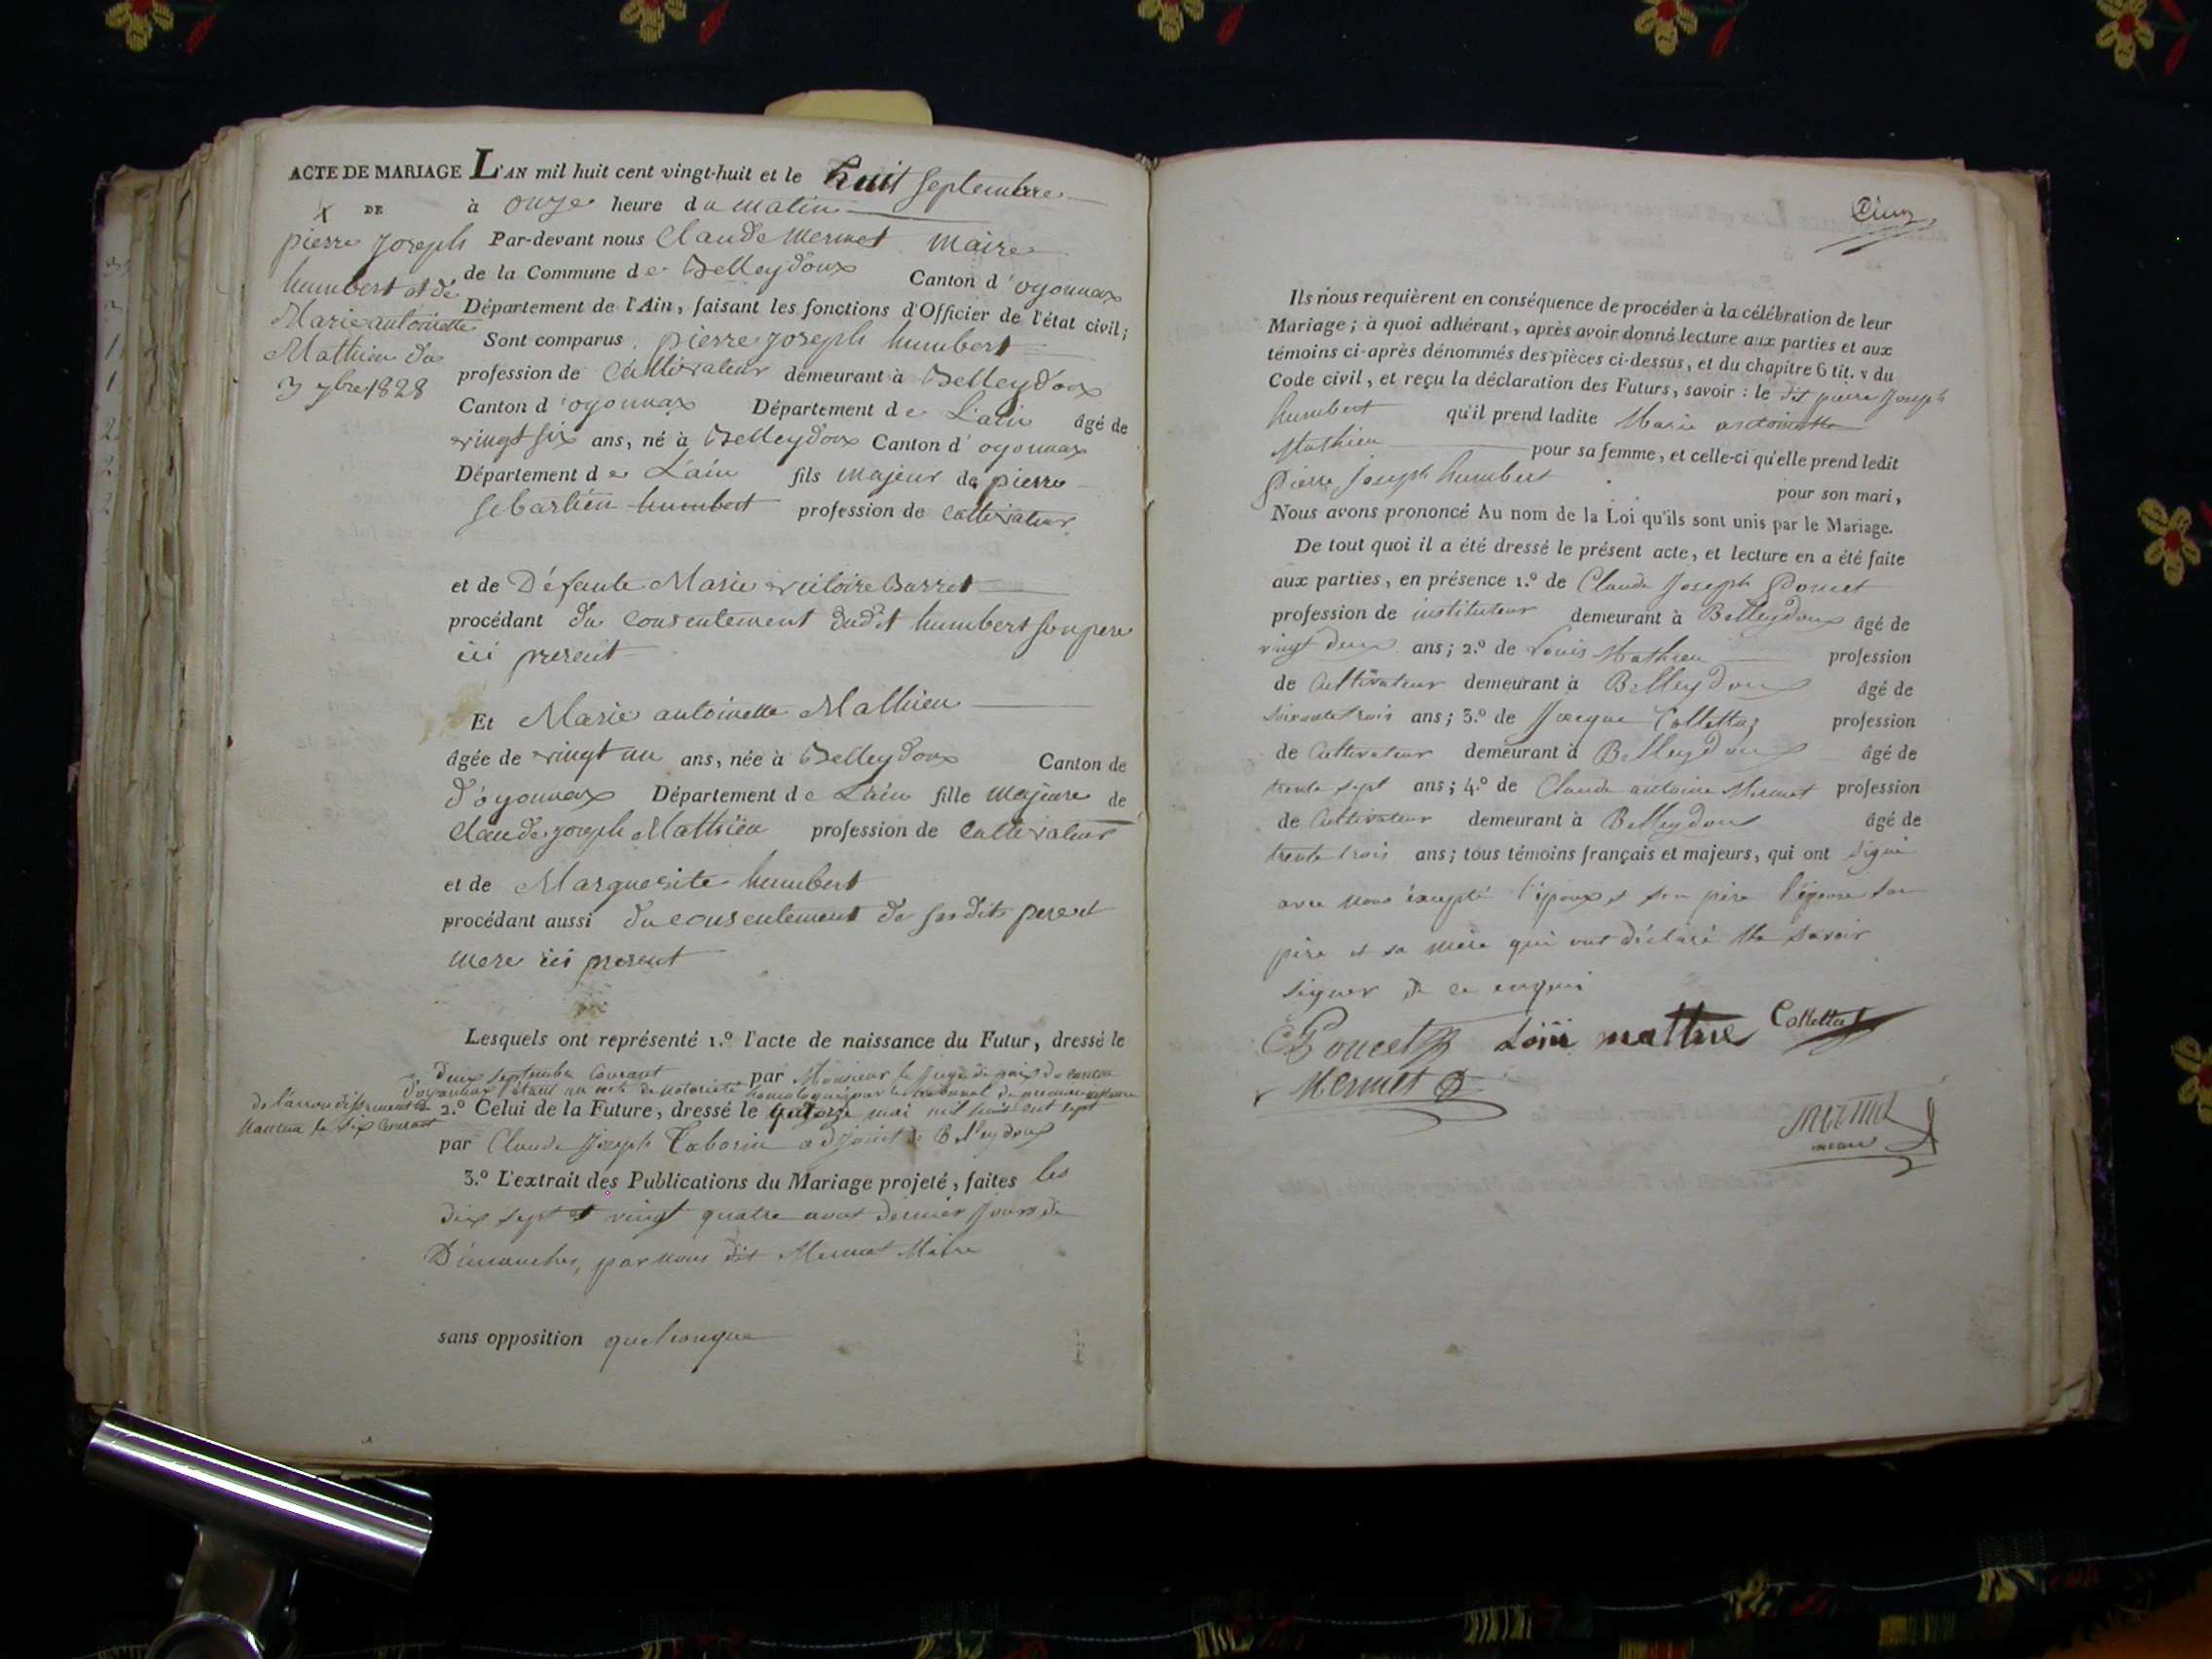 ACTE DE MARIAGE L'AN mil huit cent vingt-huit et le huit septembre
DE
pierre joseph
humbert et de
Marie antoinette
Mathieu du
7bre 1828
à onze heure du matin
Par-devant nous Claude Mermet Maire
de la Commune de Belleydoux Canton d'oyonnax
Département de l'Ain, faisant les fonctions d'Officier de l'état civil;
Sont comparus pierre joseph humbert
profession de Cultivateur demeurant à Belleydoux
Canton d'oyonnax Département de L'ain âgé de
vingt six ans, né à Belleydoux Canton d'oyonnax
Département de L'ain fils majeur de pierre
sebastien humbert profession de cultivateur
et de Défunte Marie victoire Barret
procédant du consentement dudit humbert son pere
ici present
Et Marie antoinette Mathieu
âgée de vingt un ans, née à Belleydoux Canton de
d'oyonnax Département de L'ain fille majeure de
Claude joseph Mathieu profession de Cultivateur
et de Marguerite humbert
procédant aussi du consentement de sesdits pere et
mere ici present
Lesquels ont représenté 1.º l'acte de naissance du Futur, dressé le
deux septembre Courant par Monsieur le Juge de paix du canton
d'oyonnax étant un acte de notoriété homologué par le tribunal de première instance
de l'arrondissement de
Nantua le six Courant
2.º Celui de la Future, dressé le quatorze mai mil huit cent sept
par Claude Joseph Taborin adjoint de Belleydoux
3.º L'extrait des Publications du Mariage projeté, faites les
dix sept et vingt quatre aout dernier Jours de
Dimanches, par nous dit Mermet Maire
sans opposition quelconque
Ils nous requièrent en conséquence de procéder à la célébration de leur
Mariage; à quoi adhérant, après avoir donné lecture aux parties et aux
témoins ci-après dénommés des pièces ci-dessus, et du chapitre 6 tit. v du
Code civil, et reçu la déclaration des Futurs, savoir: le dit pierre Joseph
humbert qu'il prend ladite Marie antoinette
Mathieu pour sa femme, et celle-ci qu'elle prend ledit
Pierre Joseph humbert pour son mari,
Nous avons prononcé Au nom de la Loi qu'ils sont unis par le Mariage.
De tout quoi il a été dressé le présent acte, et lecture en a été faite
aux parties, en présence 1.º de Claude Joseph Poncet
profession de instituteur demeurant à Belleydoux âgé de
vingt deux ans; 2.º de Louis Mathieu profession
de Cultivateur demeurant à Belleydoux âgé de
soixante trois ans; 3.º de Jacque Collettaz profession
de Cultivateur demeurant à Belleydoux âgé de
trente sept ans; 4.º de Claude antoine Mermet profession
de Cultivateur demeurant à Belleydoux âgé de
trente trois ans; tous témoins français et majeurs, qui ont signé
avec nous excepté l'époux et son père l'épouse son
père et sa mère qui ont déclaré ne savoir
signer de ce enquis
Poncet Loui mattieu Colletta
Mermet
Mermet
maire